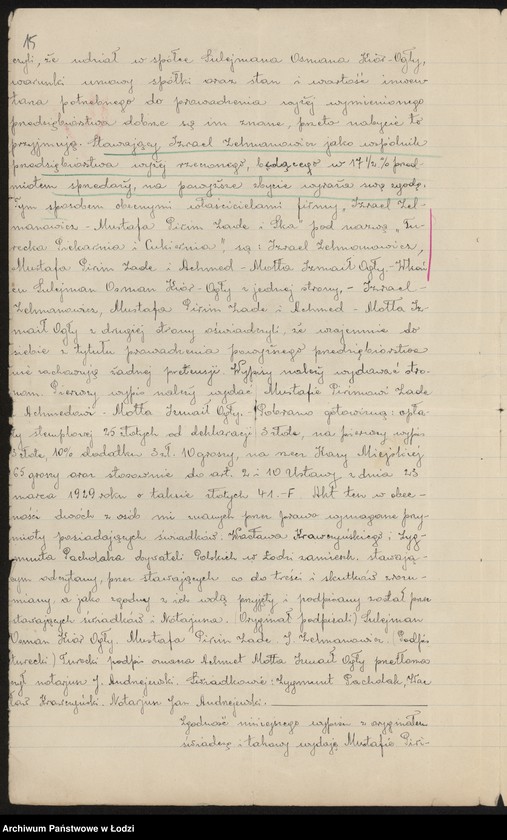 15
czyli, że udział w spółce Sulejmana Osmana Kiór-Ogły,
warunki umowy spółki oraz stan i wartość inwen-
tarza potrzebnego do prowadzenia wyżej wymienionego
przedsiębiorstwa dobrze są im znane, przeto nabycie te
przyjmują. Stawający Izrael Zelmanowicz jako wspólnik
przedsiębiorstwa wyżej rzeczonego, będącego w 17½% przed-
miotem sprzedaży, na powyższe zbycie wyraża swą zgodę.
Tym sposobem obecnymi właścicielami firmy „Izrael Zel-
manowicz - Mustafa Pirim Zade i Ska" pod nazwą „Tu-
recka Piekarnia i Cukiernia" są: Izrael Zelmanowicz,
Mustafa Pirim Zade i Achmed - Motta Izmaił Ogły. -
Sulejman Osman Kiór-Ogły z jednej strony, - Izrael -
Zelmanowicz, Mustafa Pirim Zade i Achmed - Motta Iz-
maił Ogły z drugiej strony oświadczyli, że wzajemnie do
siebie z tytułu prowadzenia powyższego przedsiębiorstwa
nie zachowują żadnej pretensji. Wypisy należy wydawać stro-
nom. Pierwszy wypis należy wydać Mustafie Pirimowi Zade
i Achmedowi - Motta Izmaił Ogły. - Pobrano gotowizną: opła-
ty stemplowej 25 złotych od deklaracji 3 złote, na pierwszy wypis
3 złote, 10% dodatku 3 zł. 10 groszy, na rzecz Kasy Miejskiej
65 groszy oraz stosownie do art. 2 i 10 Ustawy z dnia 23
marca 1929 roku o taksie złotych 41. - F. Akt ten w obec-
ności dwóch z osób mi znanych przez prawo wymagane przy-
mioty posiadających świadków: Wacława Krawczyńskiego i Zyg-
munta Pacholaka obywateli Polskich w Łodzi zamieszk. stawają-
cym odczytany, przez stawających co do treści i skutków zrozu-
miany a jako zgodny z ich wolą przyjęty i podpisany został przez
stawających świadków i Notarjusza. (Oryginał podpisali) Sulejman
Osman Kiór Ogły. Mustafa Pirim Zade. I. Zelmanowicz. (Podpis
turecki) Turecki podpis oznacza Achmet Motta Izmaił Ogły przetłoma
czył notarjusz J. Andrzejewski. Świadkowie: Zygmunt Pacholak, Wac
ław Krawczyński. Notarjusz Jan Andrzejewski.
Zgodność niniejszego wypisu z oryginałem
świadczę i takowy wydaję Mustafie Piri-
Archiwum Państwowe w Łodzi